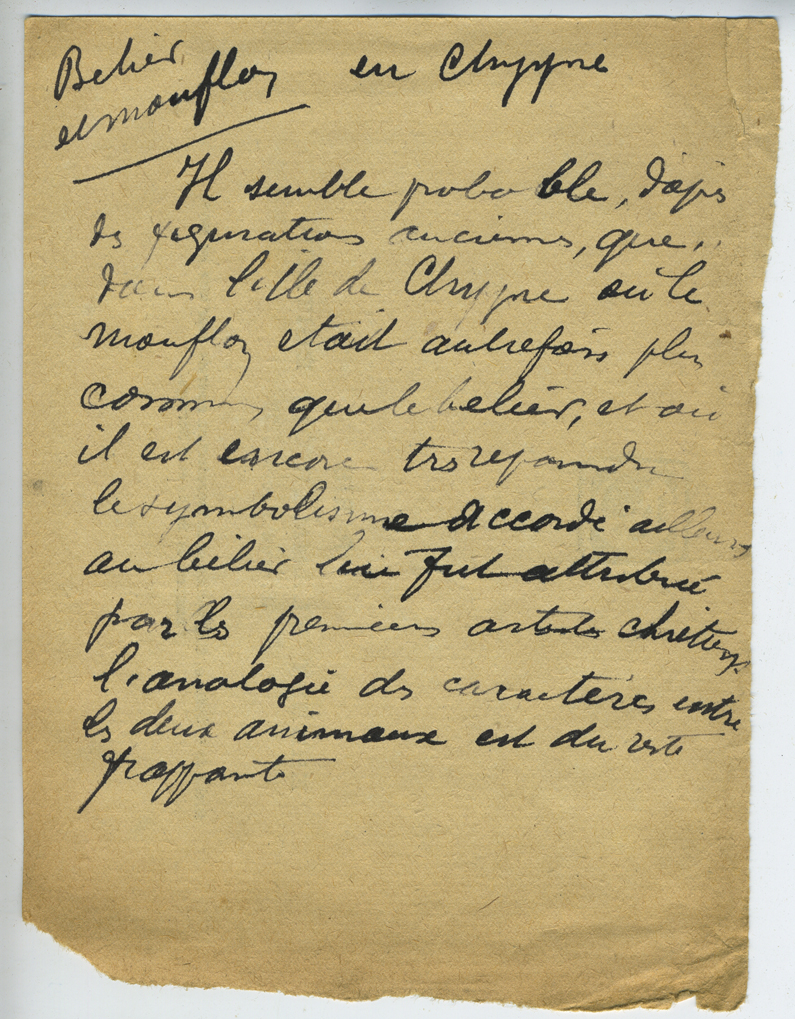 Belier en Chypre
et mouflon
Il semble probable, d'après
des figurations anciennes, que,
dans l'ille de Chypre où le
mouflon etait autrefois plus
commun que le belier, et où
il est encore très repandu
le symbolisme accordé ailleurs
au bélier lui fut attribué
par les premiers artistes chrétiens.
l'analogie des caractères entre
les deux animaux est du reste
frappante